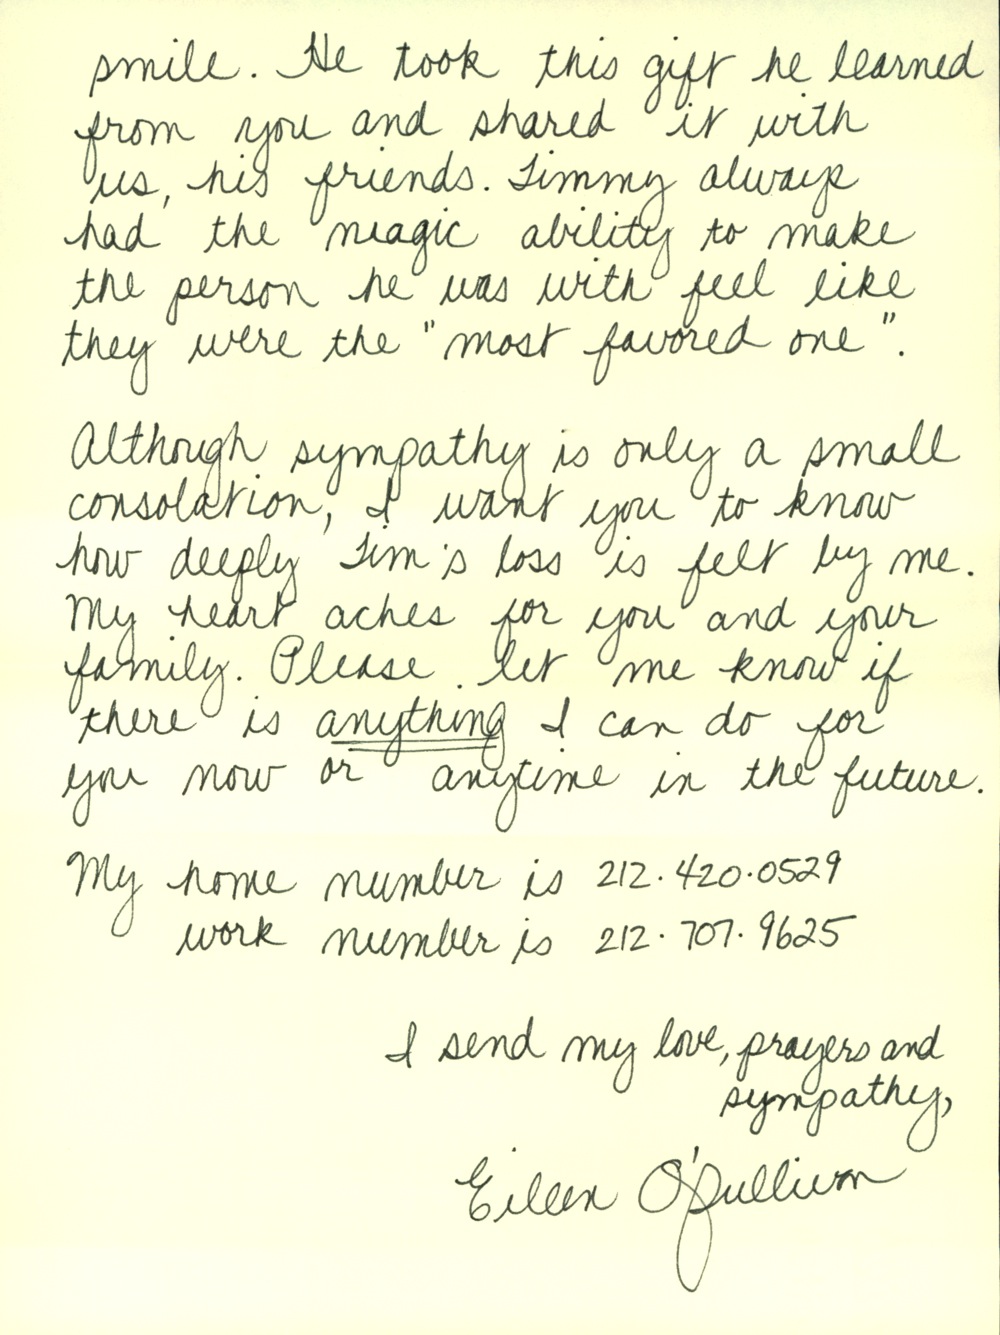 smile. He took this gift he learned
from you and shared it with
us, his friends. Timmy always
had the magic ability to make
the person he was with feel like
they were the "most favored one".
Although sympathy is only a small
consolation, I want you to know
how deeply Tim's loss is felt by me.
My heart aches for you and your
family. Please let me know if
there is anything I can do for
you now or anytime in the future.
My home number is 212.420.0529
work number is 212.707.9625
I send my love, prayers and
sympathy,
Eileen O'Sullivan